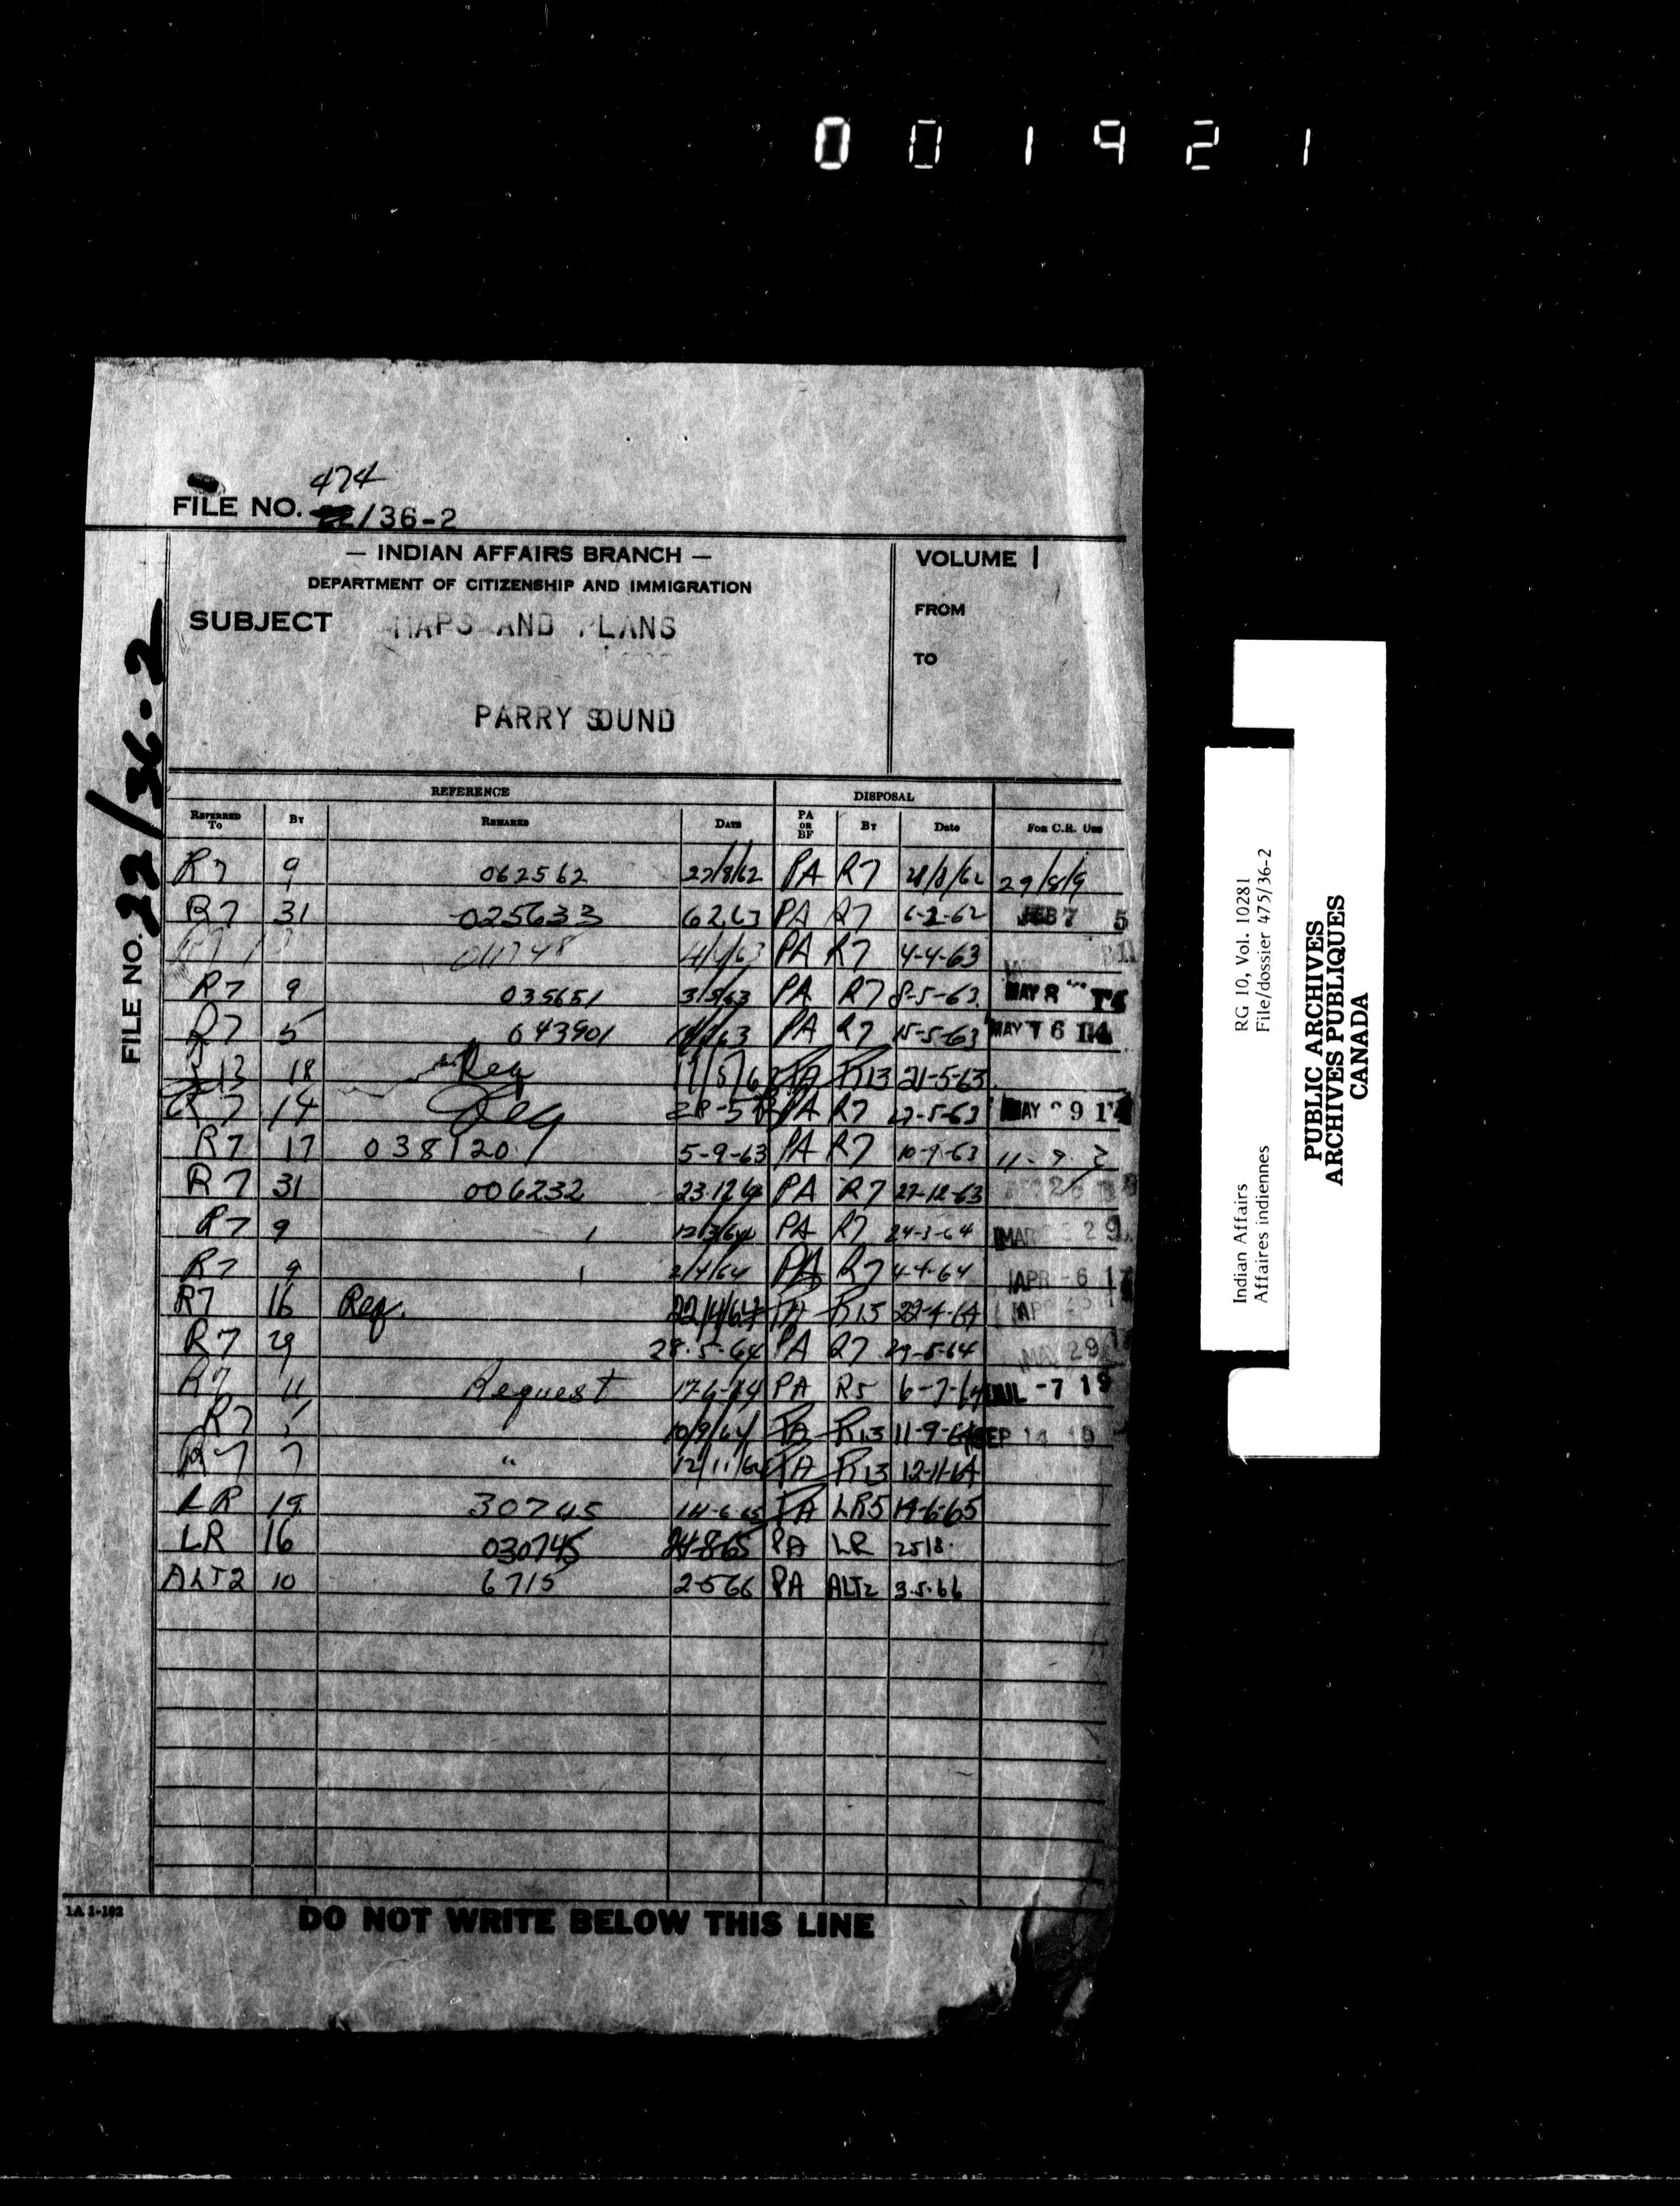 001921
474
FILE NO. 22/36-2
— INDIAN AFFAIRS BRANCH —
DEPARTMENT OF CITIZENSHIP AND IMMIGRATION
SUBJECT MAPS AND PLANS
PARRY SOUND
VOLUME 1
FROM
TO
FILE NO. 22/36-2
REFERENCE DISPOSAL
REFERRED TO BY REMARKS DATE PA OR BF BY DATE FOR C.R. USE
R7 9 062562 22/8/62 PA R7 28/8/62 29/8/9
R7 31 025633 6263 PA R7 6-2-62 FEB 7 5
4/4/63 PA R7 4-4-63
R7 9 035651 3/5/63 PA R7 8-5-63 MAY 8
R7 5 043901 PA R7 15-5-63 MAY 16
R13 18 Req 17/5/6 PA R13 21-5-63
R7 14 Req 28-5 PA R7 MAY 29
R7 17 038120 5-9-63 PA R7 10-9-63 11-9
R7 31 006232 23.12.63 PA R7 27-12-63
R7 9 1 12/3/64 PA R7 24-3-64 MAR
R7 9 1 2/4/64 PA R7 4-4-64 APR -6 17
R7 16 Req. 22/4/64 PA R13 29-4-64 APR
R7 29 28.5.64 PA R7 29-5-64 MAY 29
R7 11 Request 17-6-64 PA R5 6-7-64 JUL -7 19
R7 10/9/64 PA R13 11-9-64 SEP 14 19
R7 7 " 12/11/64 PA R13 12-11-64
LR 19 30745 14-6-65 PA LR5 14-6-65
LR 16 030745 24-8-65 PA LR 25/8.
ALT2 10 6715 2-566 PA ALT2 3.5.66
1A 1-102
DO NOT WRITE BELOW THIS LINE
Indian Affairs RG 10, Vol. 10281
Affaires indiennes File/dossier 475/36-2
PUBLIC ARCHIVES
ARCHIVES PUBLIQUES
CANADA